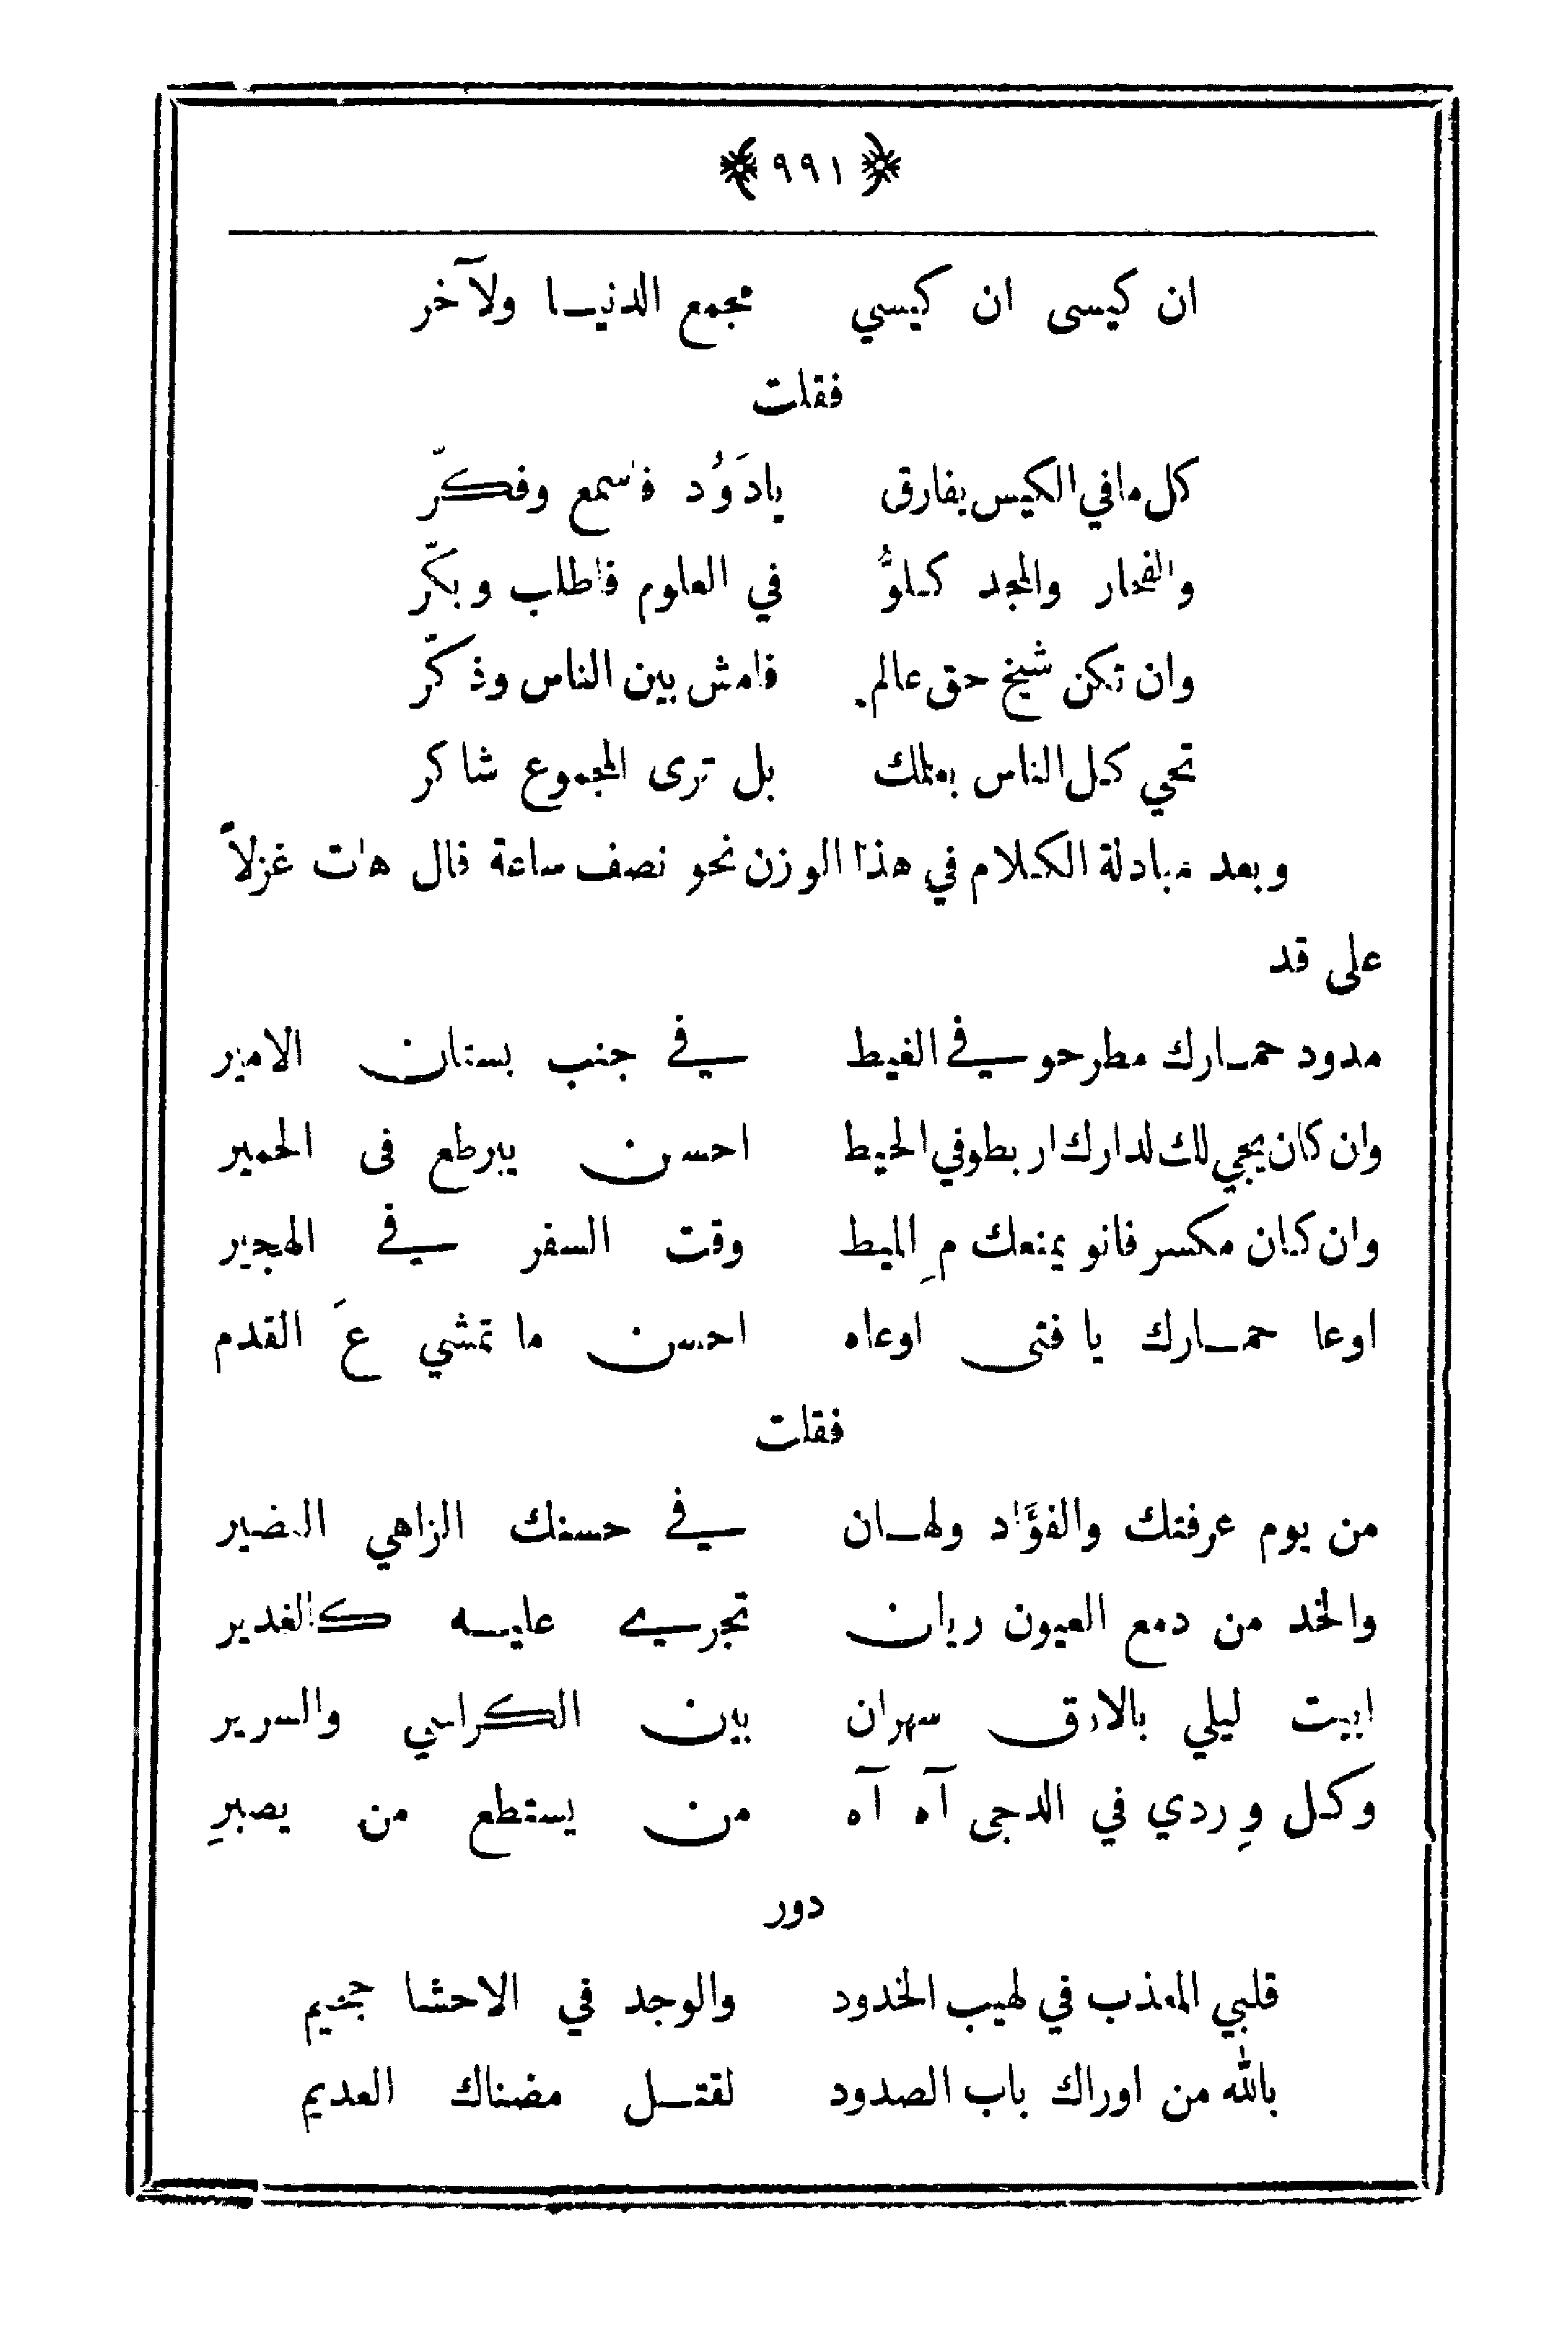 ﴿٩٩١﴾
ان كيسى ان كيسي مجمع الدنيـا ولآخر
فقلت
كل مافي الكيس يفارق يادَوُد فاسمع وفكّر
والفخار والمجد كـلوُّ في العلوم فاطلب وبكّر
وان تكن شيخ حق عالم. فامش بين الناس وذكّر
تحي كل الناس بعلمك بل ترى المجموع شاكر
وبعد مبادلة الكلام في هذا الوزن نحو نصف ساعة قال هات غزلاً
على قد
مدود حمـارك مطرحو في الغيط في جنب بستان الامير
وان كان يجي لك لدارك اربطو في الحيط احسن يبرطع فى الحمير
وان كان مكسر فانو يمنعك مِ الميط وقت السفر في الهجير
اوعا حمـارك يا فتى اوعاه احسن ما تمشي عَ القدم
فقلت
من يوم عرفتك والفوَّاد ولهـان في حسنك الزاهي النضير
والخد من دمع العيون ريان تجري عليـه كالغدير
ابيت ليلي بالارق سهران بين الكراسي والسرير
وكل وِردي في الدجى آه آه من يستطع من يصبرِ
دور
قلبي المعذب في لهيب الخدود والوجد في الاحشا جحيم
بالله من اوراك باب الصدود لقتـل مضناك العديم